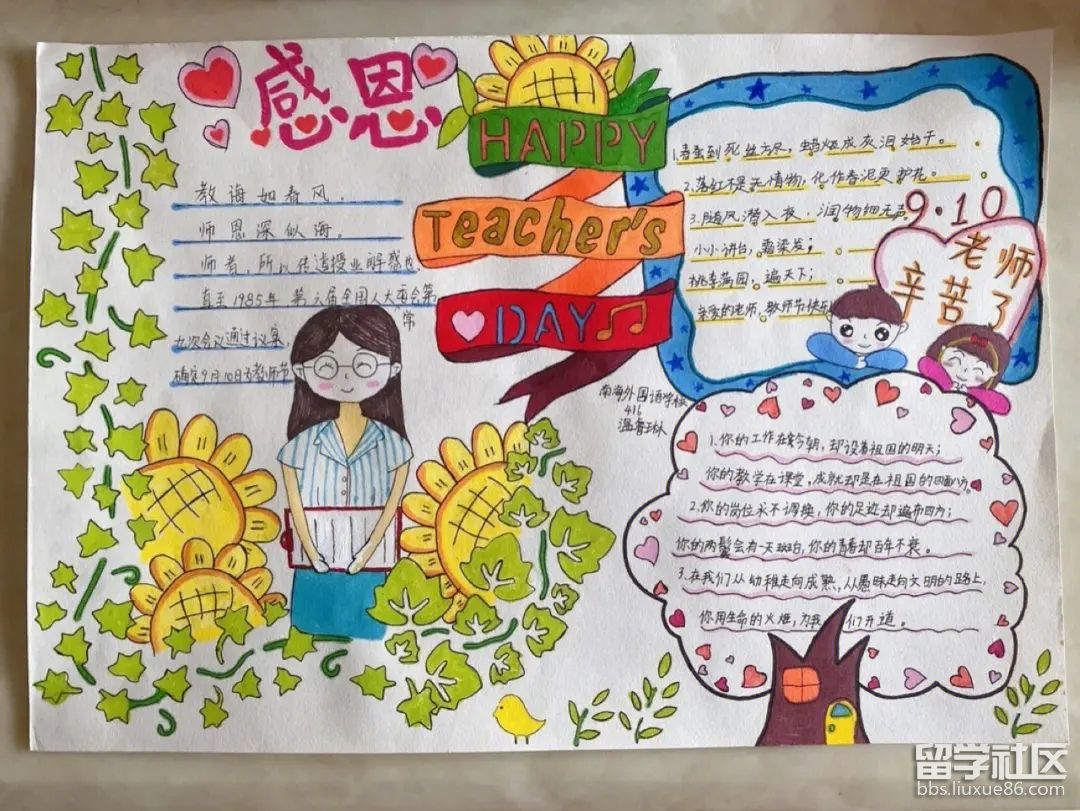 感恩
HAPPY
Teacher's
DAY
教诲如春风，
师恩深似海。
师者，所以传道授业解惑也，
直至1985年 第六届全国人大常
九次会议通过议案，
确定9月10日为教师节
1.春蚕到死丝方尽，蜡炬成灰泪始干。
2.落红不是无情物，化作春泥更护花。
3.随风潜入夜，润物细无声。
小小讲台，霜染发；
桃李满园，遍天下；
亲爱的老师，教师节快乐
9·10
老师
辛苦了
南海外国语学校
416
1.你的工作在今朝，却设着祖国的明天；
你的教学在课堂，成就却是在祖国的四面八方。
2.你的岗位永不调换，你的足迹却遍布四方；
你的两鬓会有一天斑白，你的青春却百年不衰。
3.在我们从幼稚走向成熟，从愚昧走向文明的路上，
你用生命的火炬，为我们开道。
留学社区
bbs.liuxue86.com